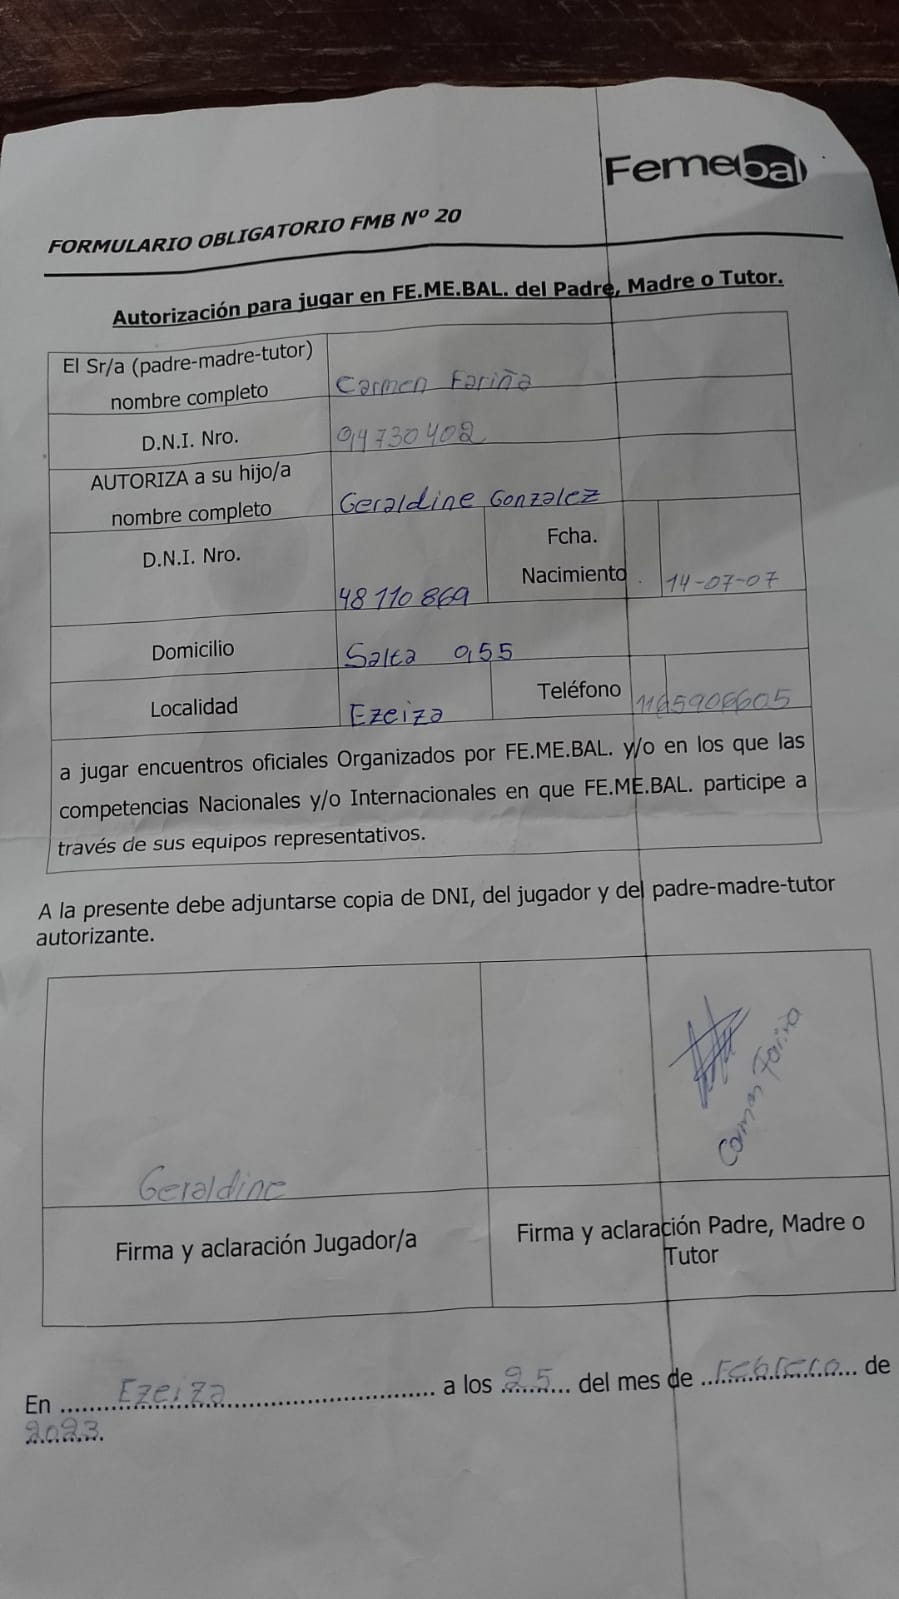 Femebal
FORMULARIO OBLIGATORIO FMB Nº 20
Autorización para jugar en FE.ME.BAL. del Padre, Madre o Tutor.
El Sr/a (padre-madre-tutor)
nombre completo Carmen Fariña
D.N.I. Nro. 94730402
AUTORIZA a su hijo/a
nombre completo Geraldine Gonzalez
D.N.I. Nro. 48 110 869 Fcha.
Nacimiento 14-07-07
Domicilio Salta 955
Localidad Ezeiza Teléfono 1165906605
a jugar encuentros oficiales Organizados por FE.ME.BAL. y/o en los que las
competencias Nacionales y/o Internacionales en que FE.ME.BAL. participe a
través de sus equipos representativos.
A la presente debe adjuntarse copia de DNI, del jugador y del padre-madre-tutor
autorizante.
Geraldine
Carmen Fariña
Firma y aclaración Jugador/a
Firma y aclaración Padre, Madre o
Tutor
En Ezeiza a los 25 del mes de Febrero de
2023.